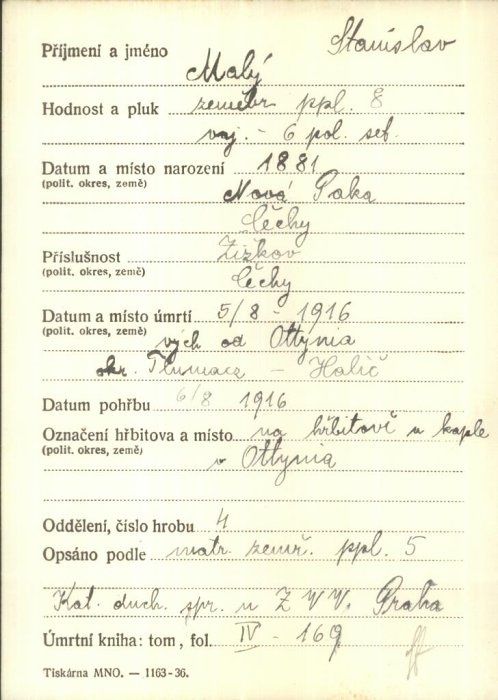 Příjmení a jméno Stanislav
Malý
Hodnost a pluk zeměbr ppl. 8
voj. - 6 pol. set.
Datum a místo narození 1881
(polit. okres, země) Nová Paka
Čechy
Příslušnost Žižkov
(polit. okres, země) Čechy
Datum a místo úmrtí 5/8 - 1916
(polit. okres, země) vých od Ottynia
okr. Tlumacz - Halič
Datum pohřbu 6/8 1916
Označení hřbitova a místo na hřbitově u kaple
(polit. okres, země) v Ottynia
Oddělení, číslo hrobu 4
Opsáno podle matr. zemř. ppl. 5
Kat. duch. spr. u Z V V. Praha
Úmrtní kniha: tom, fol. IV - 169
Tiskárna MNO. — 1163-36.